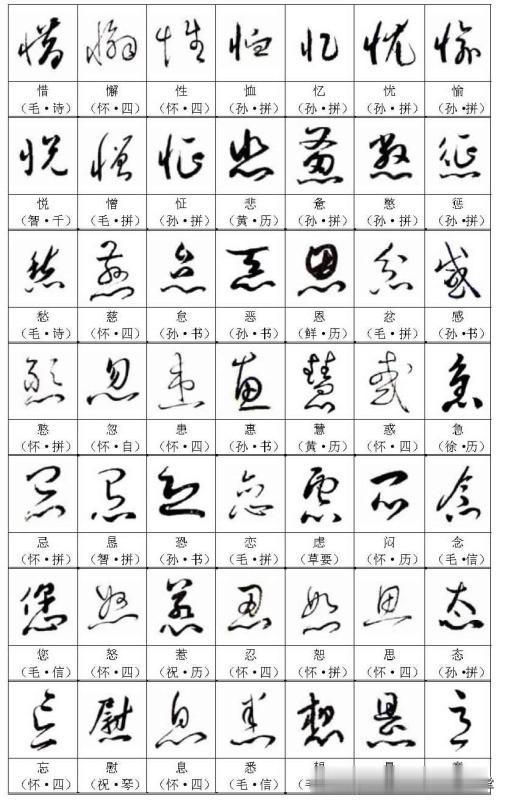 惜 懈 性 恤 忆 忧 愉
(毛·诗) (怀·四) (怀·四) (孙·拼) (孙·拼) (孙·拼) (孙·拼)
悦 憎 怔 悲 惫 憋 惩
(智·千) (毛·拼) (孙·拼) (黄·历) (孙·拼) (孙·拼) (孙·拼)
愁 慈 怠 恶 恩 忿 感
(毛·诗) (怀·四) (孙·书) (孙·书) (鲜·历) (毛·拼) (孙·书)
憨 忽 患 惠 慧 惑 急
(怀·拼) (怀·自) (怀·四) (孙·书) (黄·历) (怀·四) (徐·历)
忌 恳 恐 恋 虑 闷 念
(怀·拼) (智·拼) (孙·书) (毛·拼) (草要) (怀·历) (毛·信)
您 怒 惹 忍 恕 思 态
(毛·信) (怀·四) (祝·历) (怀·四) (怀·拼) (怀·四) (孙·拼)
忘 慰 息 悉 想 悬 意
(怀·四) (祝·琴) (怀·四) (毛·信)